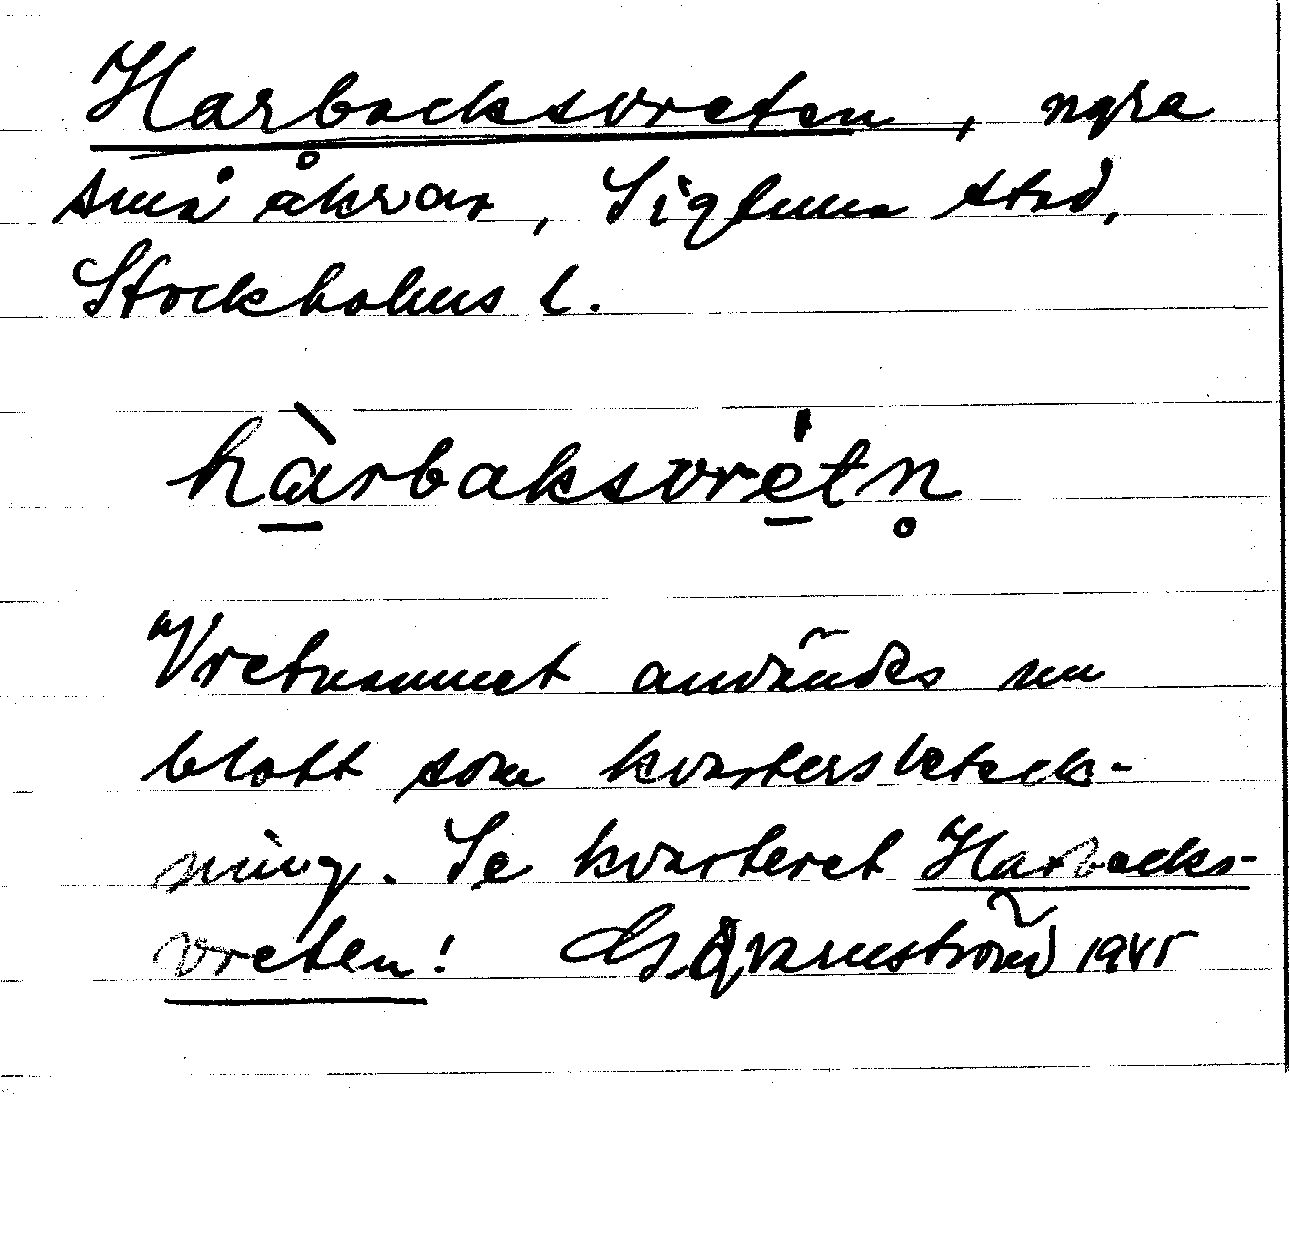 Harbacksvreten, ngra
små åkrar, Sigtuna stad,
Stockholms l.
hàrbaksvrétn̥
Vretnamnet användes nu
blott som kvartersbeteck-
ning. Se kvarteret Harbacks-
vreten! Qvarnström 1945